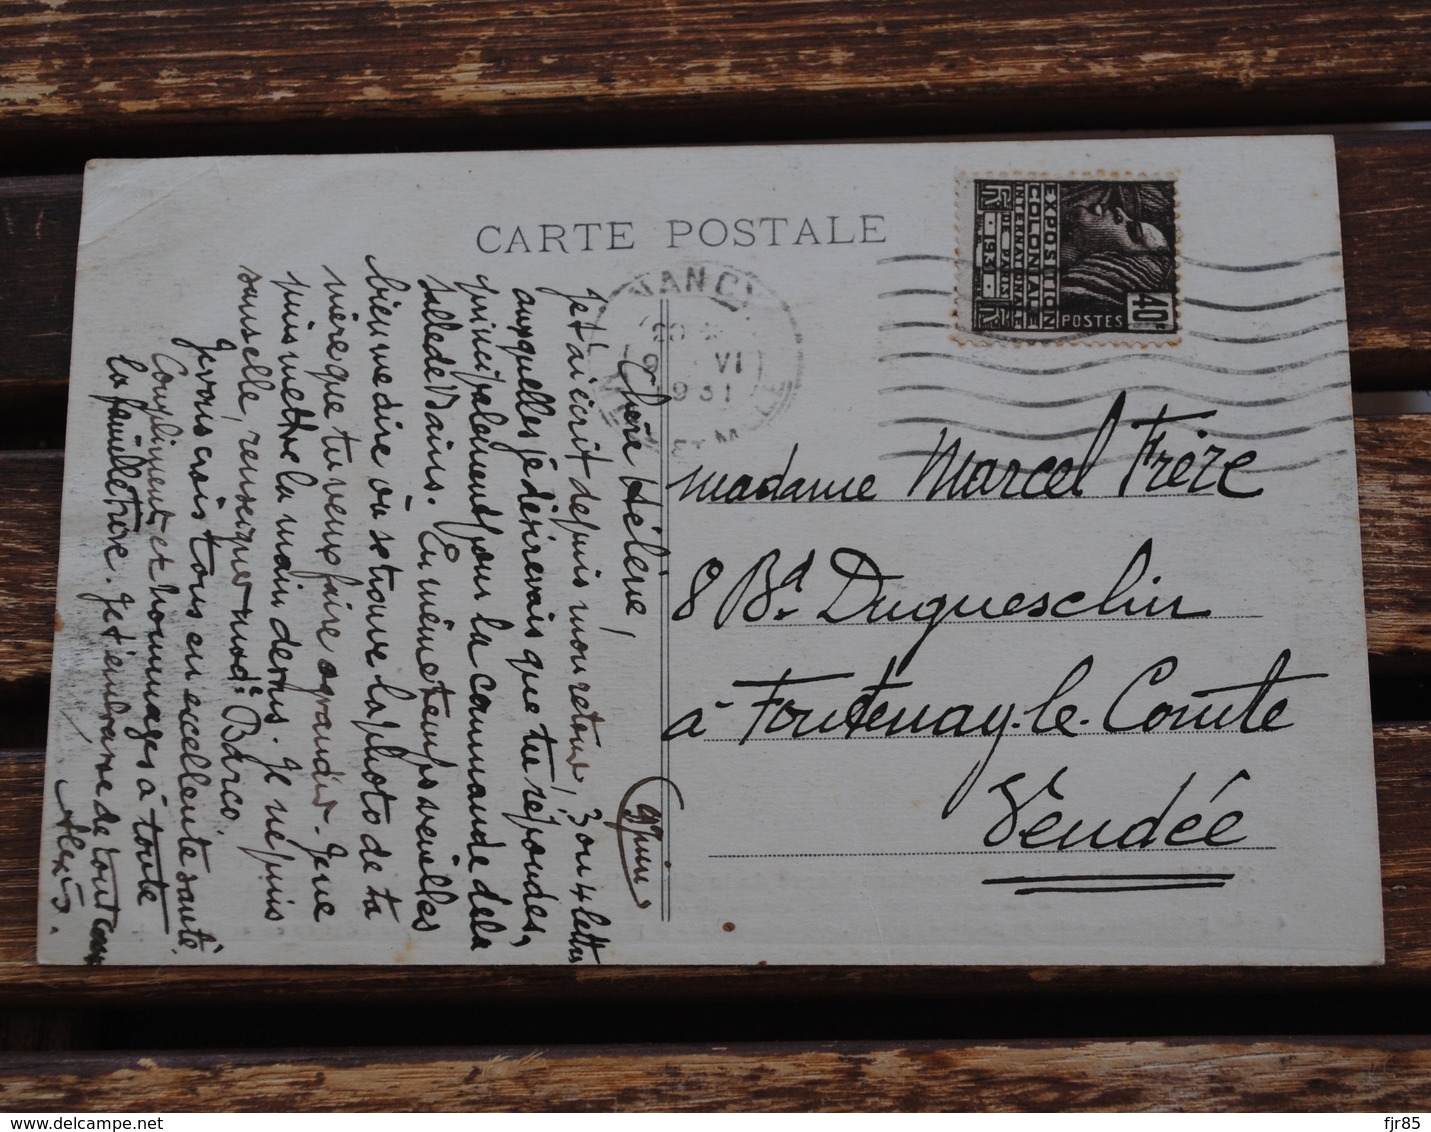 CARTE POSTALE
NANCY
9 VI
1931
EXPOSITION
COLONIALE
INTERNATIONALE
DE PARIS
1931
RF
POSTES
40c
Madame Marcel Frère
8 Bd. Duguesclin
à Fontenay-le-Comte
Vendée
9 Juin
Chère Hélène,
Je t'ai écrit depuis mon retour, 3 ou 4 lettres
auxquelles je désirerais que tu répondes,
principalement pour la commande de la
salle de Bains. En même temps veuilles
bien me dire où se trouve la photo de ta
mère que tu veux faire agrandir. Je ne
puis mettre la main dessus. Je ne puis
sans elle, renseigner Barco.
Je vous crois tous en excellente santé.
Compliments et hommages à toute
la famille Frère. Je t'embrasse de tout cœur
Alexis.
delcampe.net
fjr85